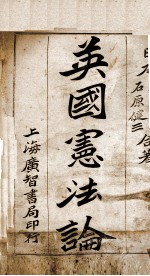 石原健三 合著
英國憲法論
上海廣智書局印行